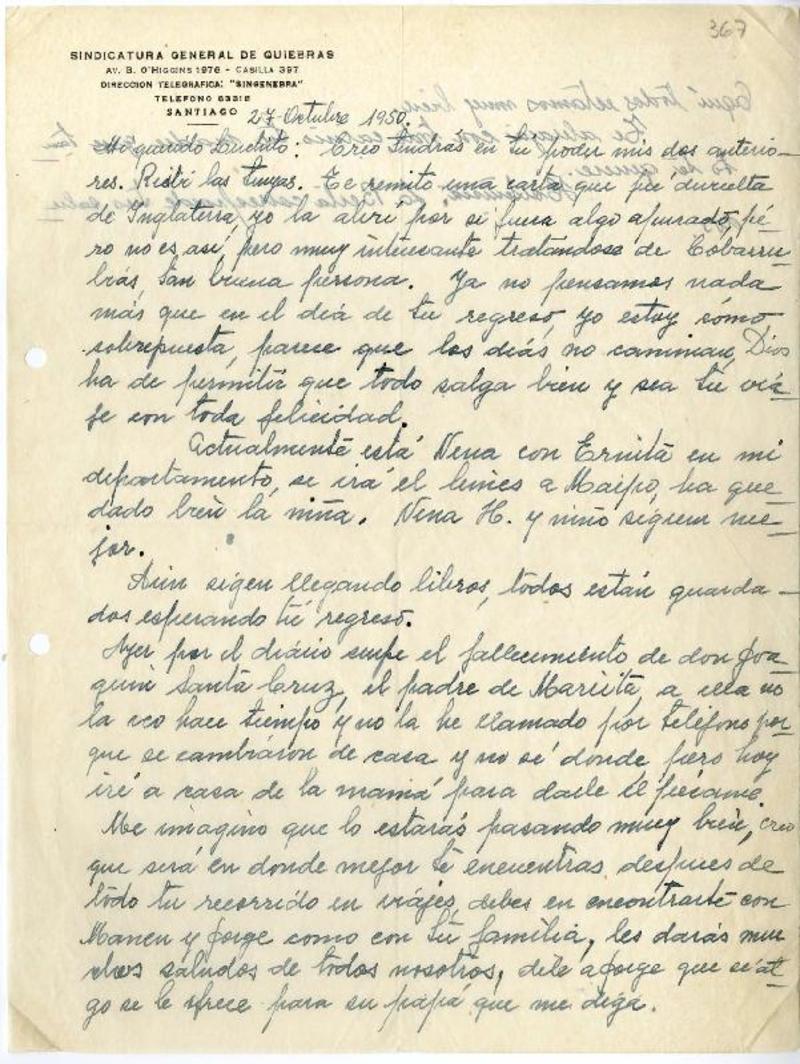 367
SINDICATURA GENERAL DE QUIEBRAS
AV. B. O'HIGGINS 1976 - CASILLA 397
DIRECCION TELEGRAFICA: "SINGENEBRA"
TELEFONO 63318
SANTIAGO 27 Octubre 1950.
Mi querido Luchito: Creo tendrás en tu poder mis dos anterio-
res. Recibí las tuyas. Te remito una carta que fué devuelta
de Inglaterra, yo la abrí por si fuera algo apurado, pé-
ro no es así, pero muy interesante tratándose de Cobarru-
biás, tan buena persona. Ya no pensamos nada
más que en el día de tu regreso, yo estoy cómo
sobrepuesta, parece que los diás no caminan, Dios
ha de permitir que todo salga bien y sea tu viá-
je con toda felicidad.
Actualmente está Nena con Ernitá en mi
departamento, se irá el lunes a Maipo, ha que-
dado bien la niña. Nena H. y niño siguen me-
jor.
Aún sigen llegando libros, todos están guarda-
dos esperando tú regreso.
Ayer por el diário supe el fallecimiento de don Joa-
quin Santa Cruz, el padre de Mariitá, a ella no
la veo hace tiempo y no la he llamado por teléfono por-
que se cambiáron de casa y no sé donde pero hoy
iré a casa de la mamá para darle el pésame.
Me imagino que lo estarás pasando muy bien, creo
que será en donde mejor te encuentras despues de
todo tu recorrido en viájes, debes en encontrarte con
Manen y Jorge como con tu família, les darás mu-
chos saludos de todos nosotros, dile a Jorge que si al-
go se le ofrece para su papá que me diga.